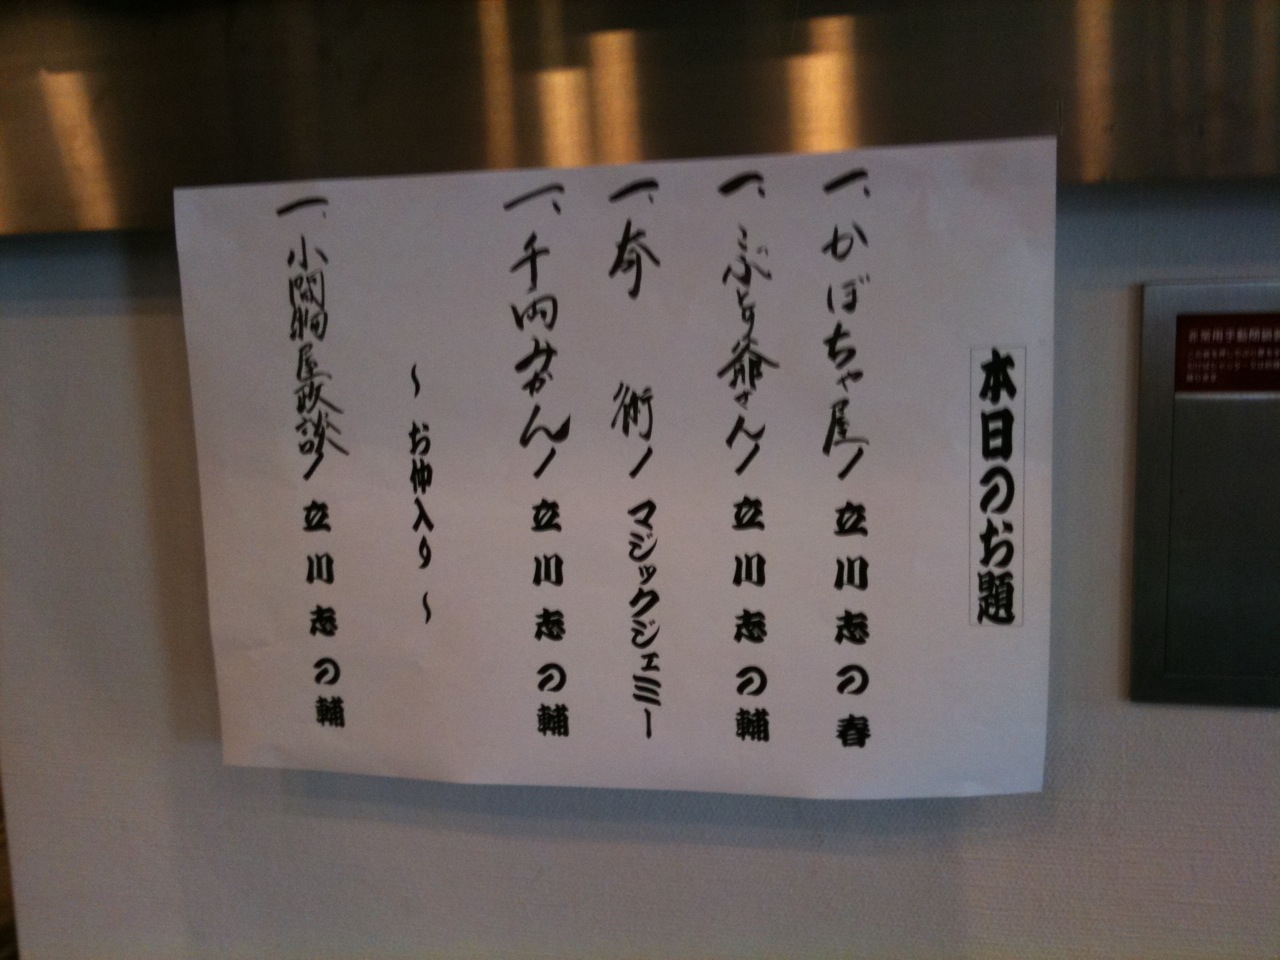 本日のお題
一、かぼちゃ屋／立川志の春
一、こぶとり爺さん／立川志の輔
一、奇術／マジックジェミー
一、千両みかん／立川志の輔
～お仲入り～
一、小間物屋政談／立川志の輔
非常用手動開閉装置